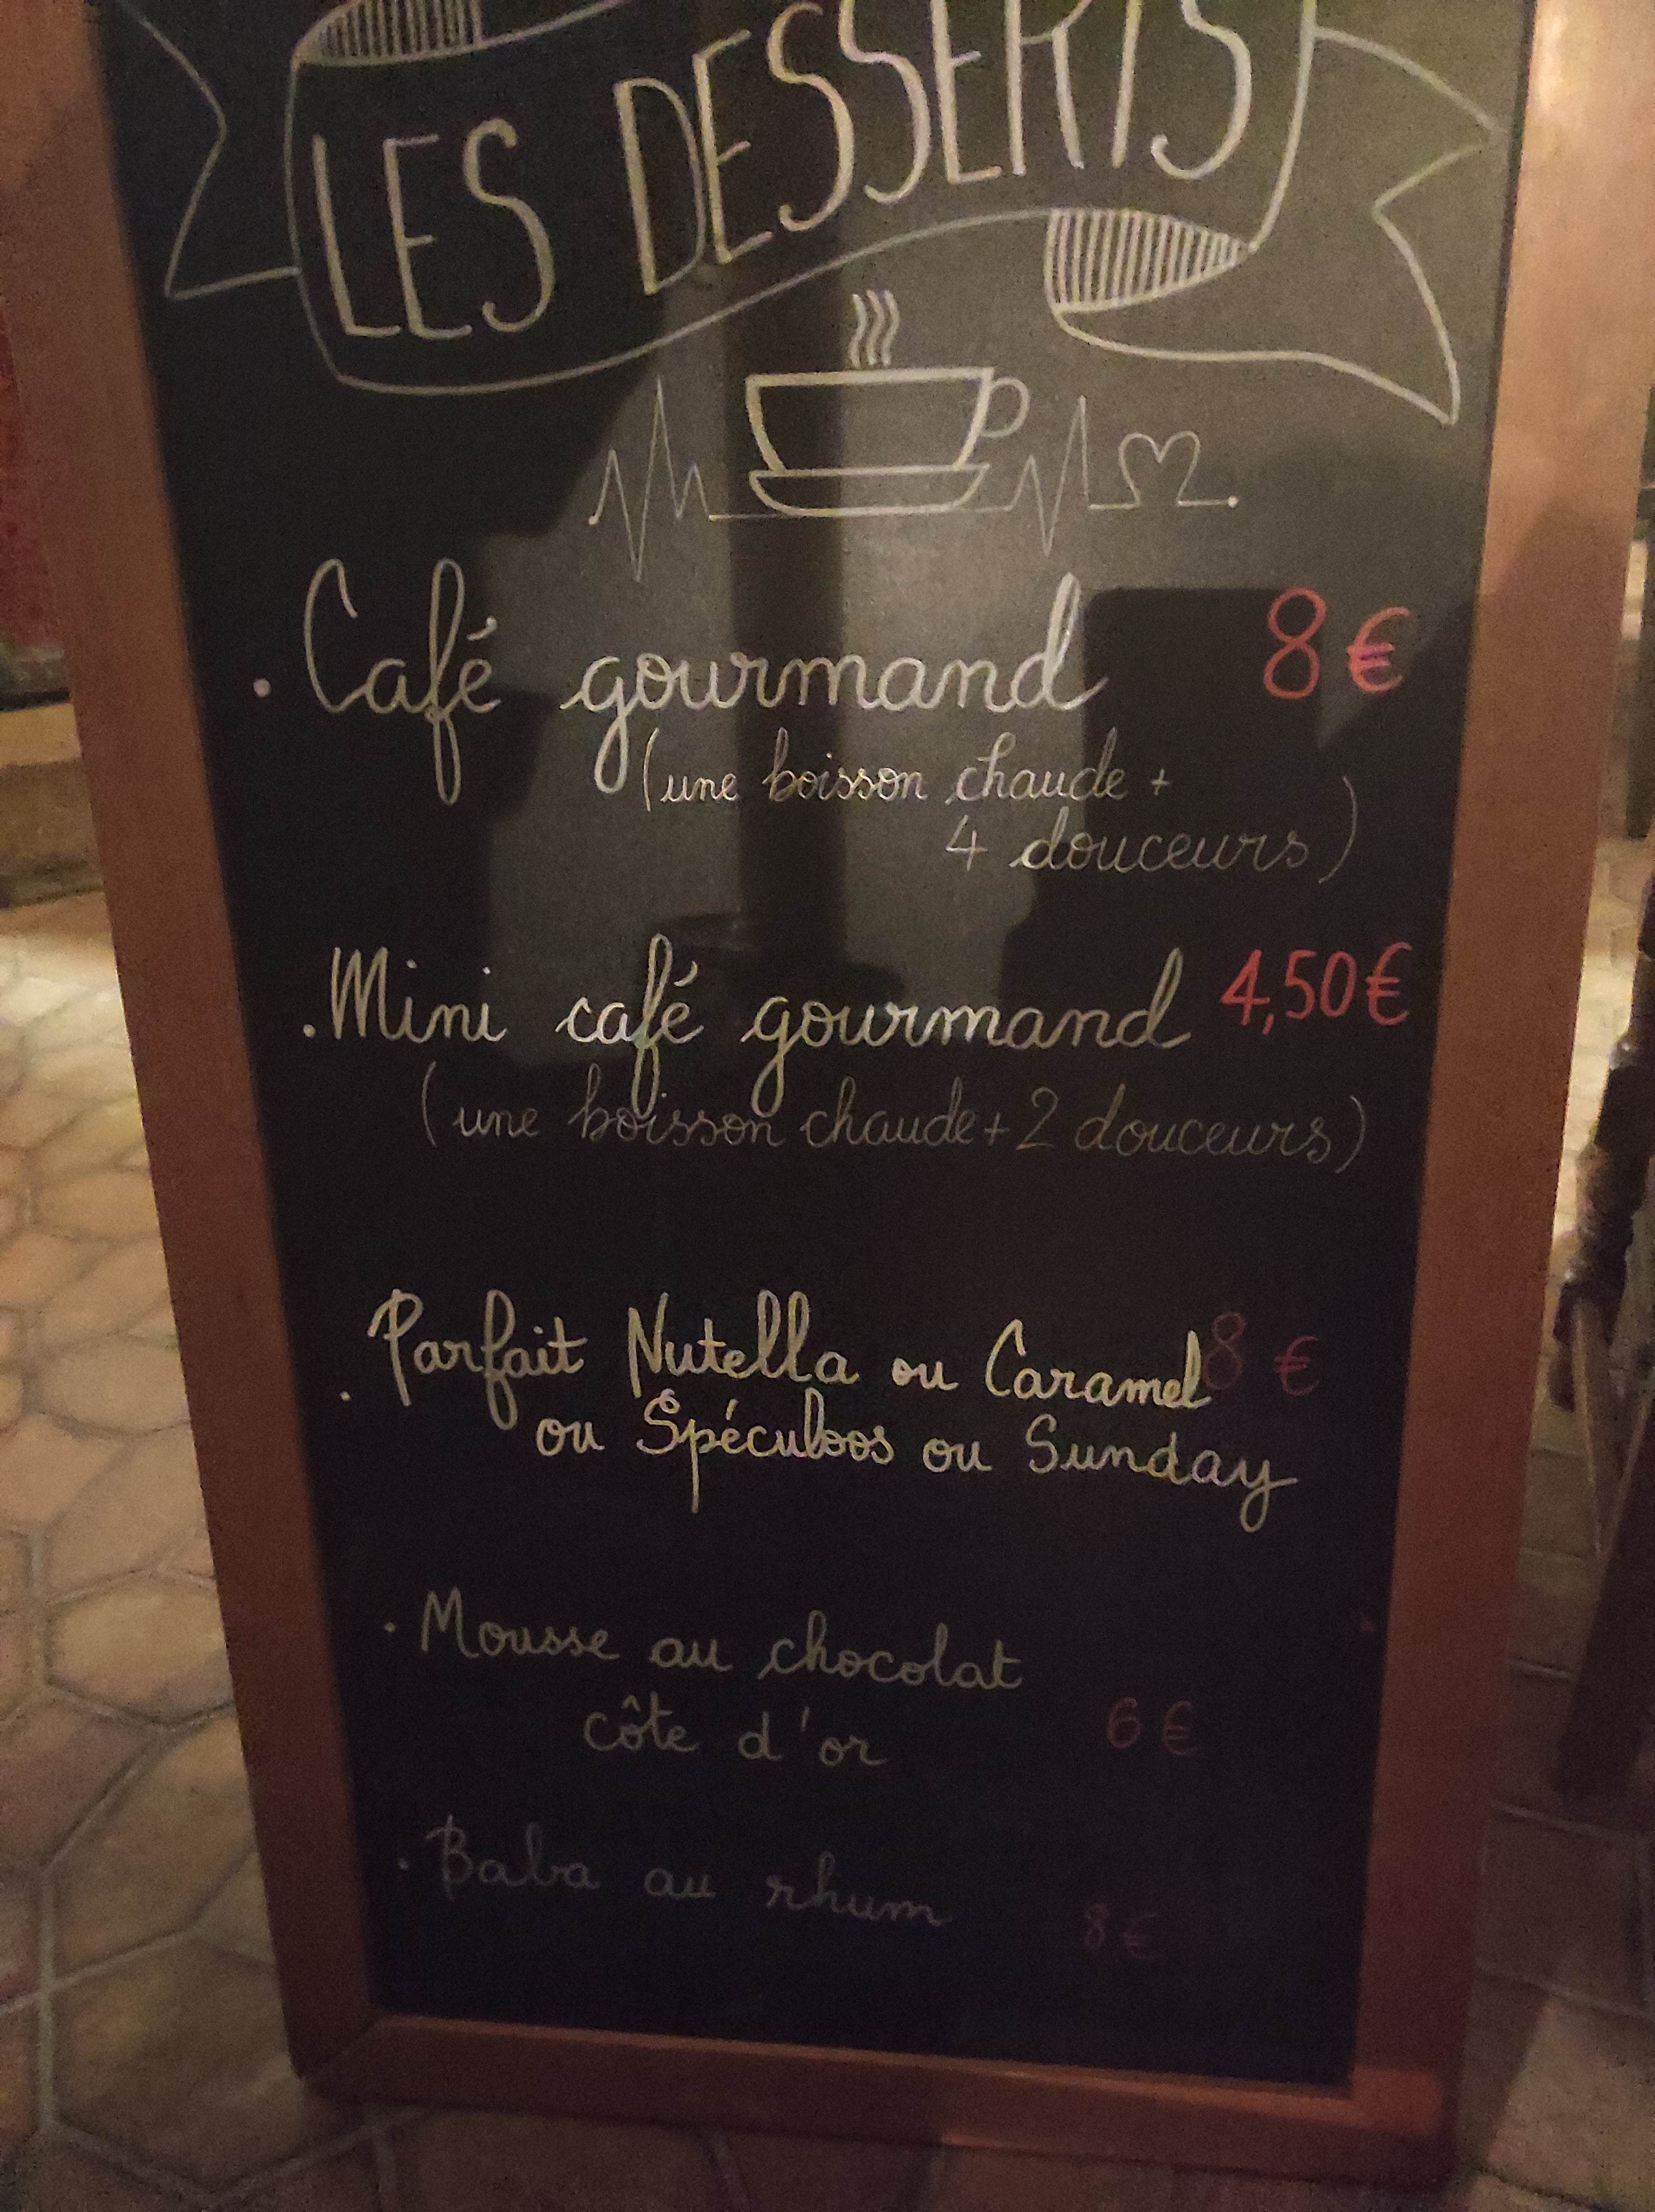 LES DESSERTS
. Café gourmand 8 €
(une boisson chaude +
4 douceurs)
. Mini café gourmand 4,50 €
(une boisson chaude + 2 douceurs)
. Parfait Nutella ou Caramel 8 €
ou Spéculoos ou Sunday
. Mousse au chocolat
côte d'or 6 €
. Baba au rhum 8 €